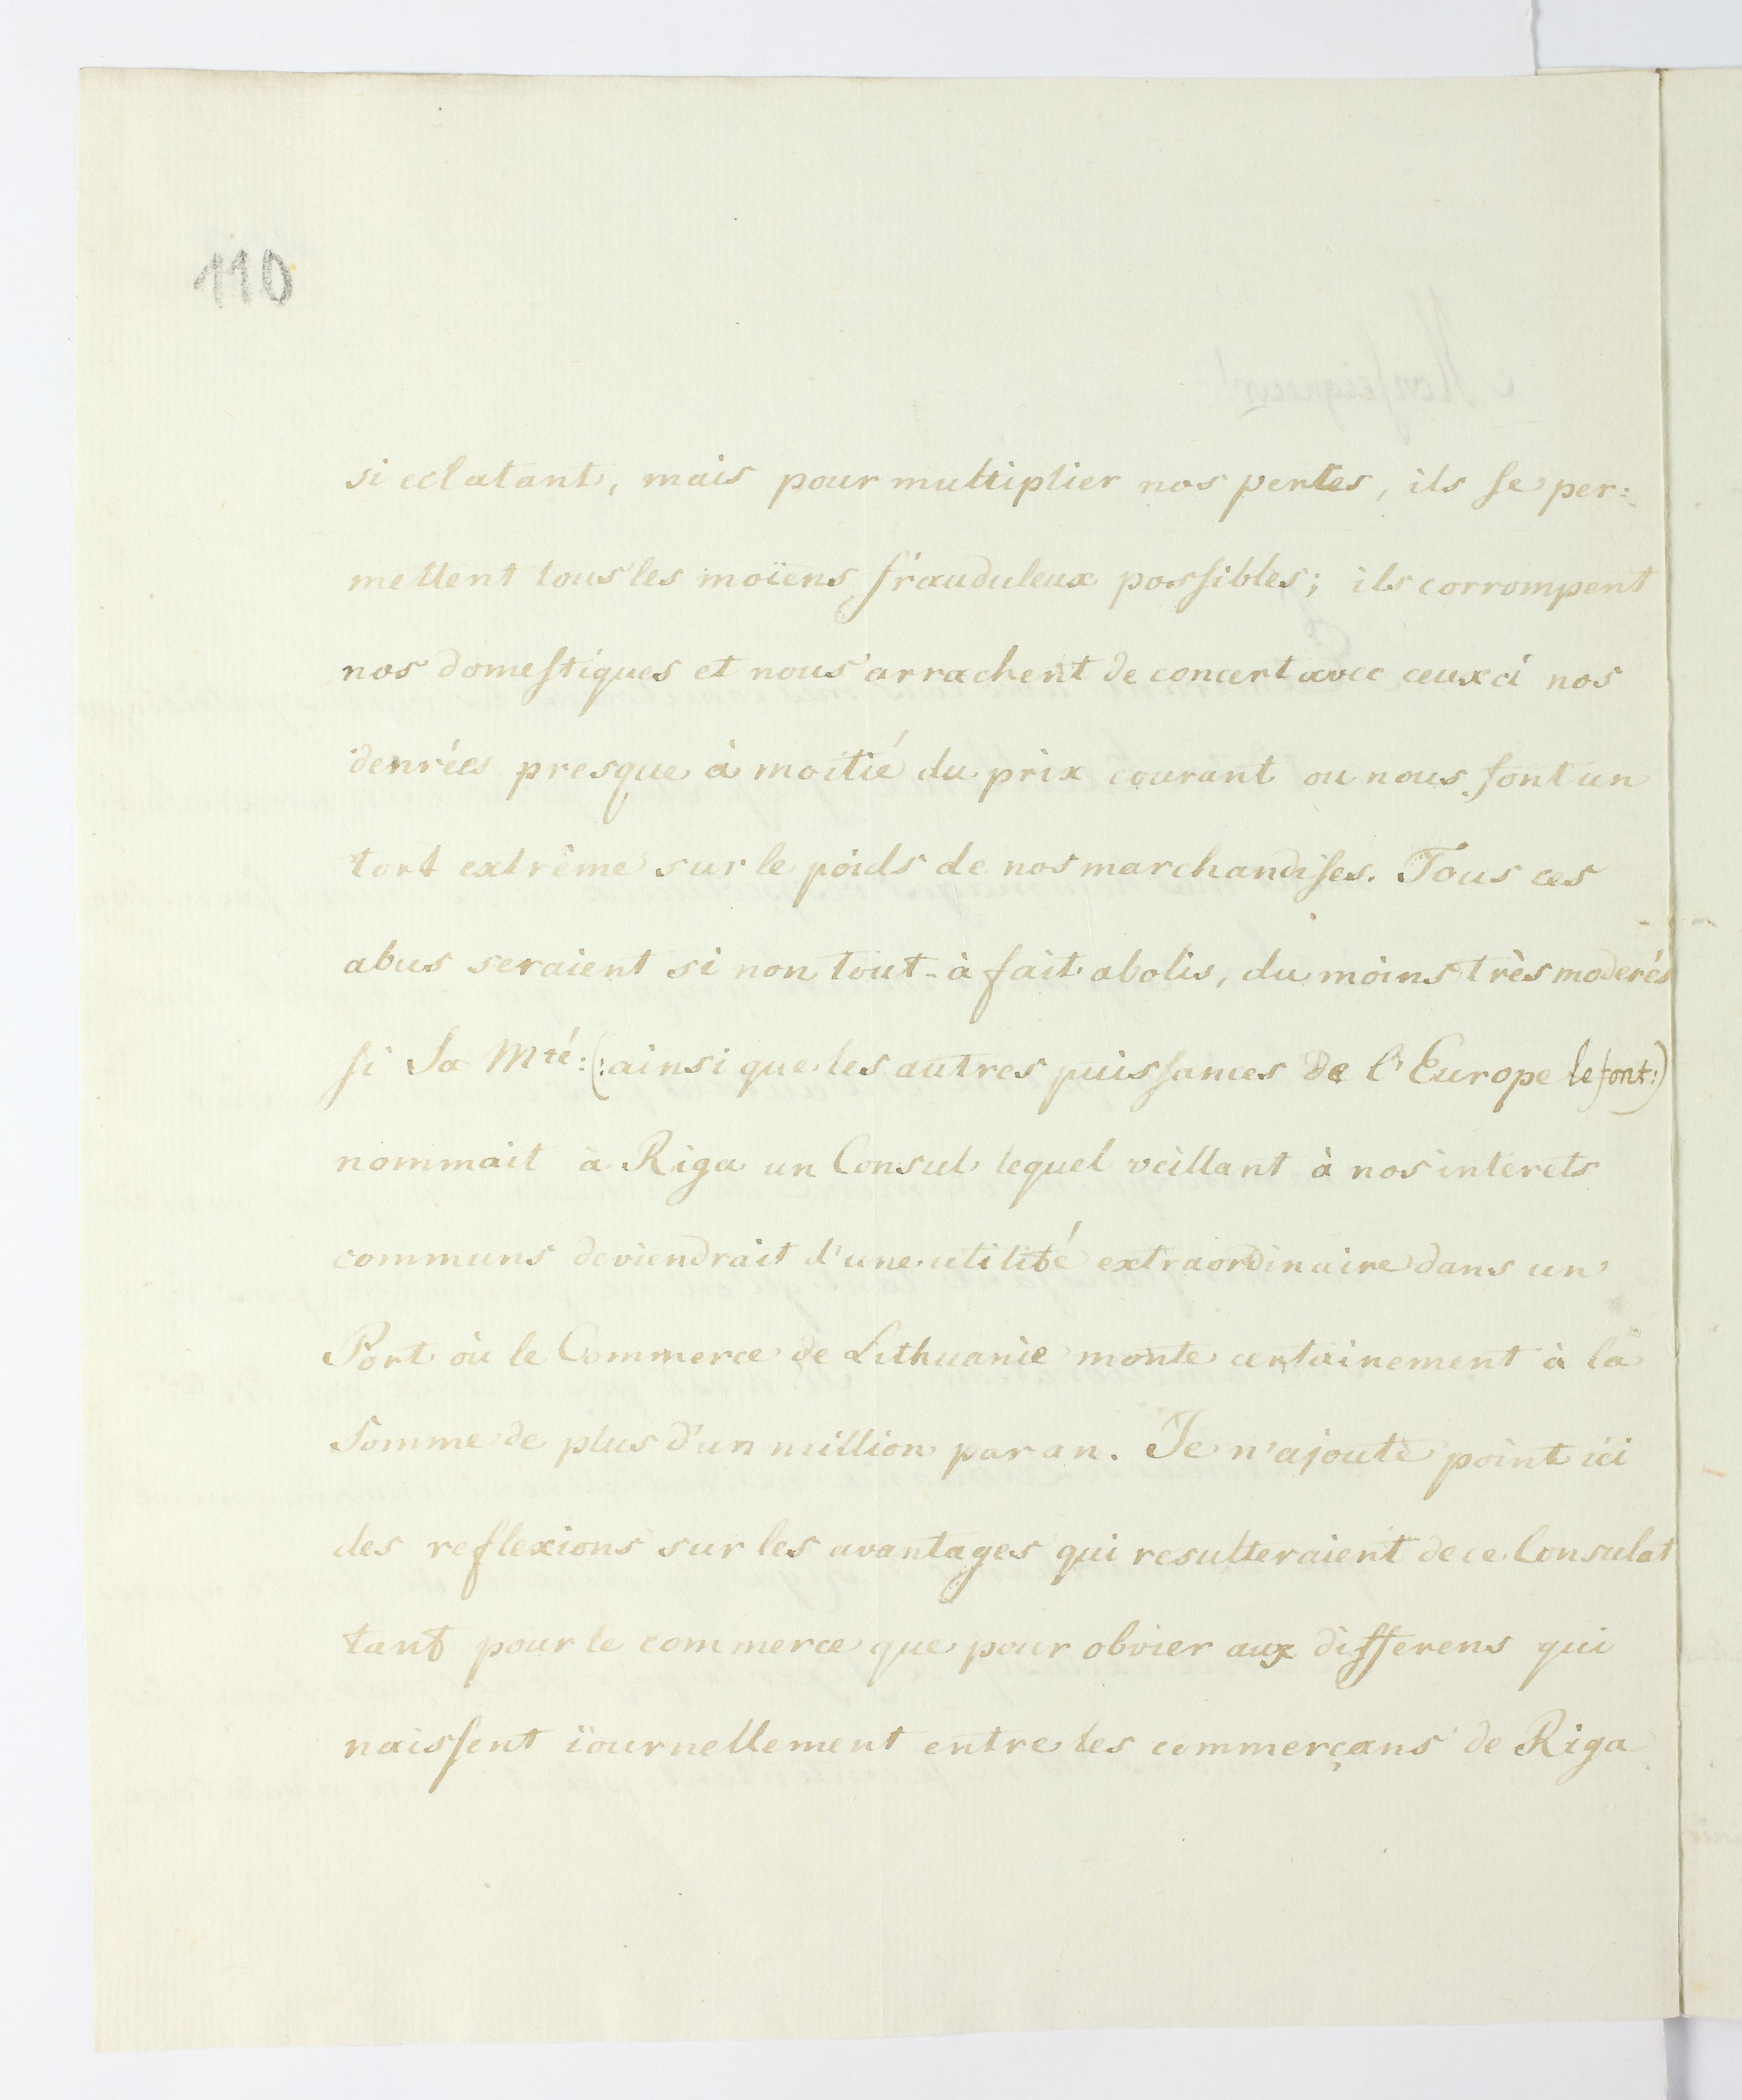 110
si eclatant, mais pour multiplier nos pertes, ils se per:
mettent tous les moïens frauduleux possibles; ils corrompent
nos domestiques et nous arrachent de concert avec ceux ci nos
denrées presque à moitié du prix courant ou nous font un
tort extrême sur le poids de nos marchandises. Tous ces
abus seraient si non tout-à fait abolis, du moins très moderés
si Sa Mté: (: ainsi que les autres puissances de l'Europe le font:)
nommait à Riga un Consul lequel veillant à nos interets
communs deviendrait d'une utilité extraordinaire dans un
Port où le Commerce de Lithuanie monte certainement à la
Somme de plus d'un million par an. Je n'ajoute point ici
des reflexions sur les avantages qui resulteraient de ce Consulat
tant pour le commerce que pour obvier aux differens qui
naissent iournellement entre les commerçans de Riga